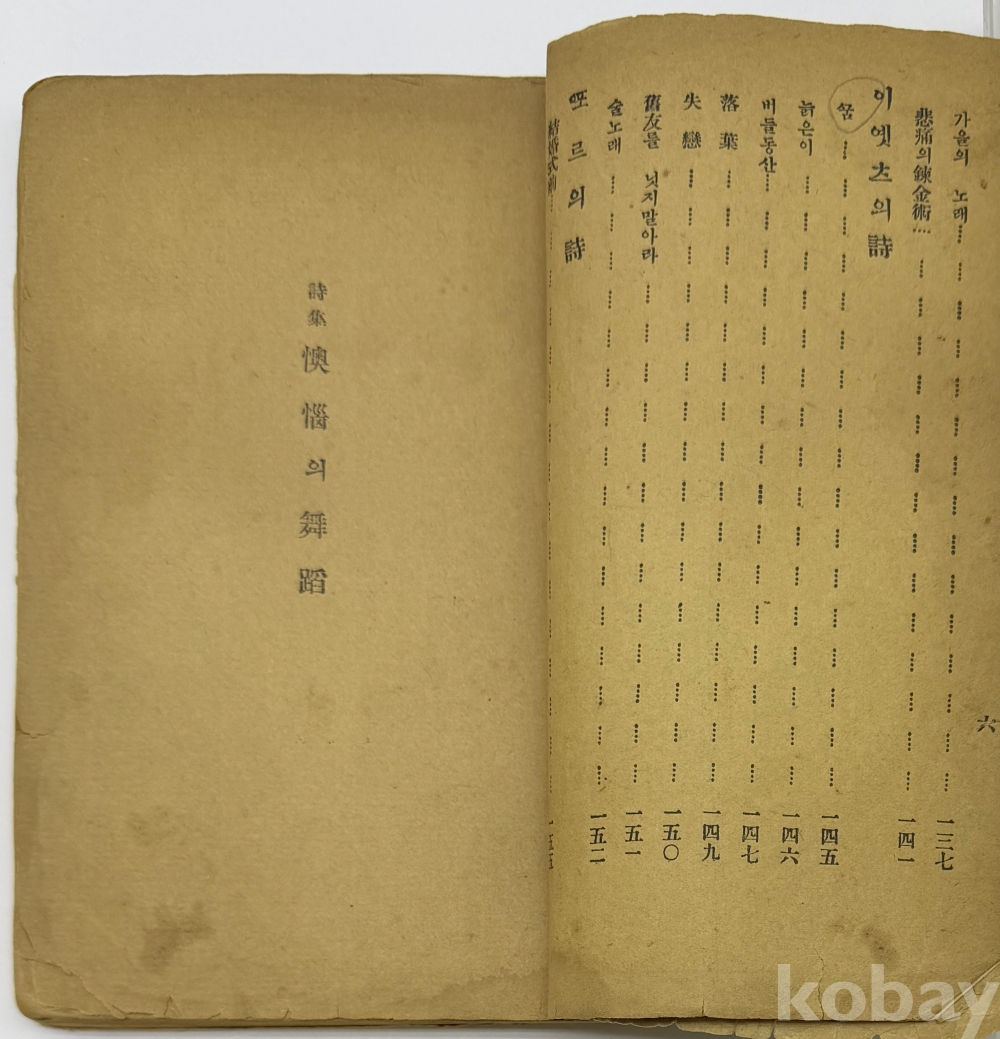 六
가을의 노래………………一三七
悲痛의鍊金術………………一四一
이옛츠의詩
ᄭᅮᆷ………………一四五
늙은이………………一四六
버들동산………………一四七
落葉………………一四九
失戀………………一五〇
舊友를 닛지말아라………………一五一
술노래………………一五二
포르의詩
結婚式前………………一五五
詩集 懊惱의舞蹈
kobay